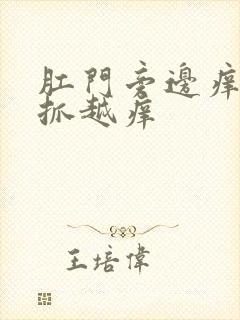 肛門旁邊痒
抓越痒
王培偉